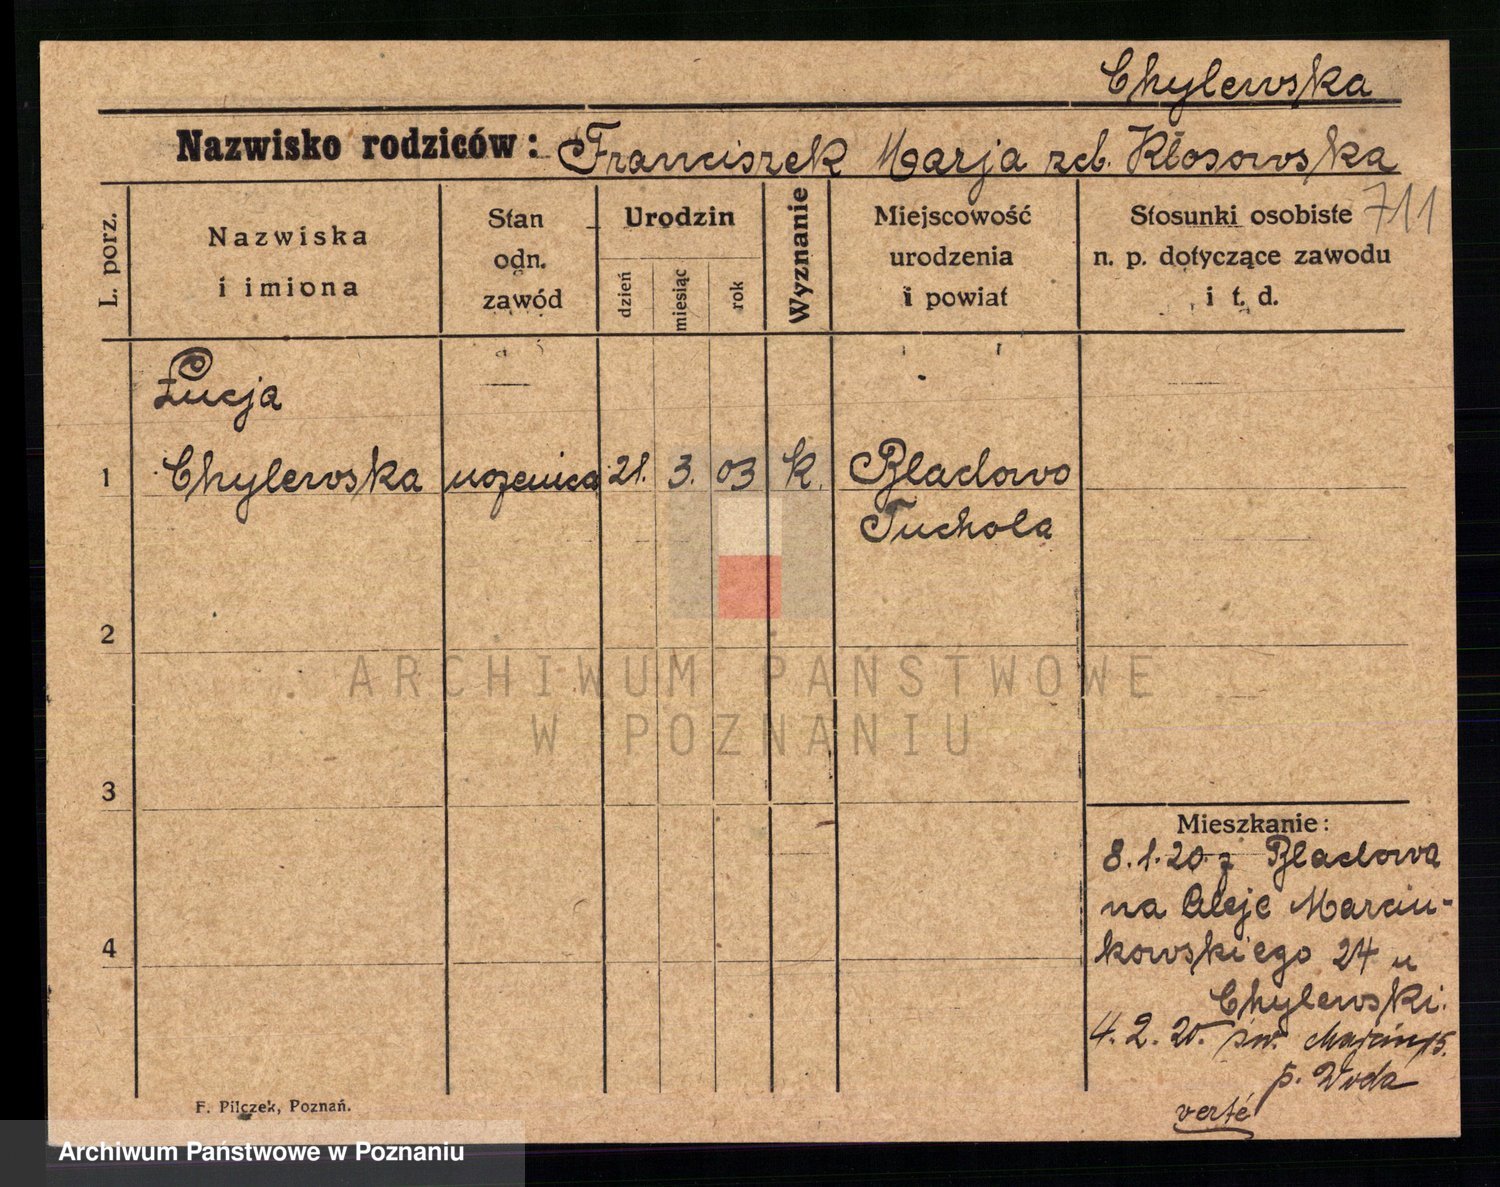 Chylewska
Nazwisko rodziców: Franciszek Marja zd. Kłosowska
711
L. porz.
Nazwiska
i imiona
Stan
odn.
zawód
Urodzin
dzień
miesiąc
rok
Wyznanie
Miejscowość
urodzenia
i powiat
Stosunki osobiste
n. p. dotyczące zawodu
i t. d.
Łucja
1 Chylewska uczenica 21. 3. 03 k. Bladowo
Tuchola
2
3
4
Mieszkanie:
8.1.20. z Bladowa
na Aleje Marcin-
kowskiego 24 u
Chylewski.
4.2.20. św. Marcin 15.
p. Woda
verte
F. Pilczek, Poznań.
ARCHIWUM PAŃSTWOWE
W POZNANIU
Archiwum Państwowe w Poznaniu